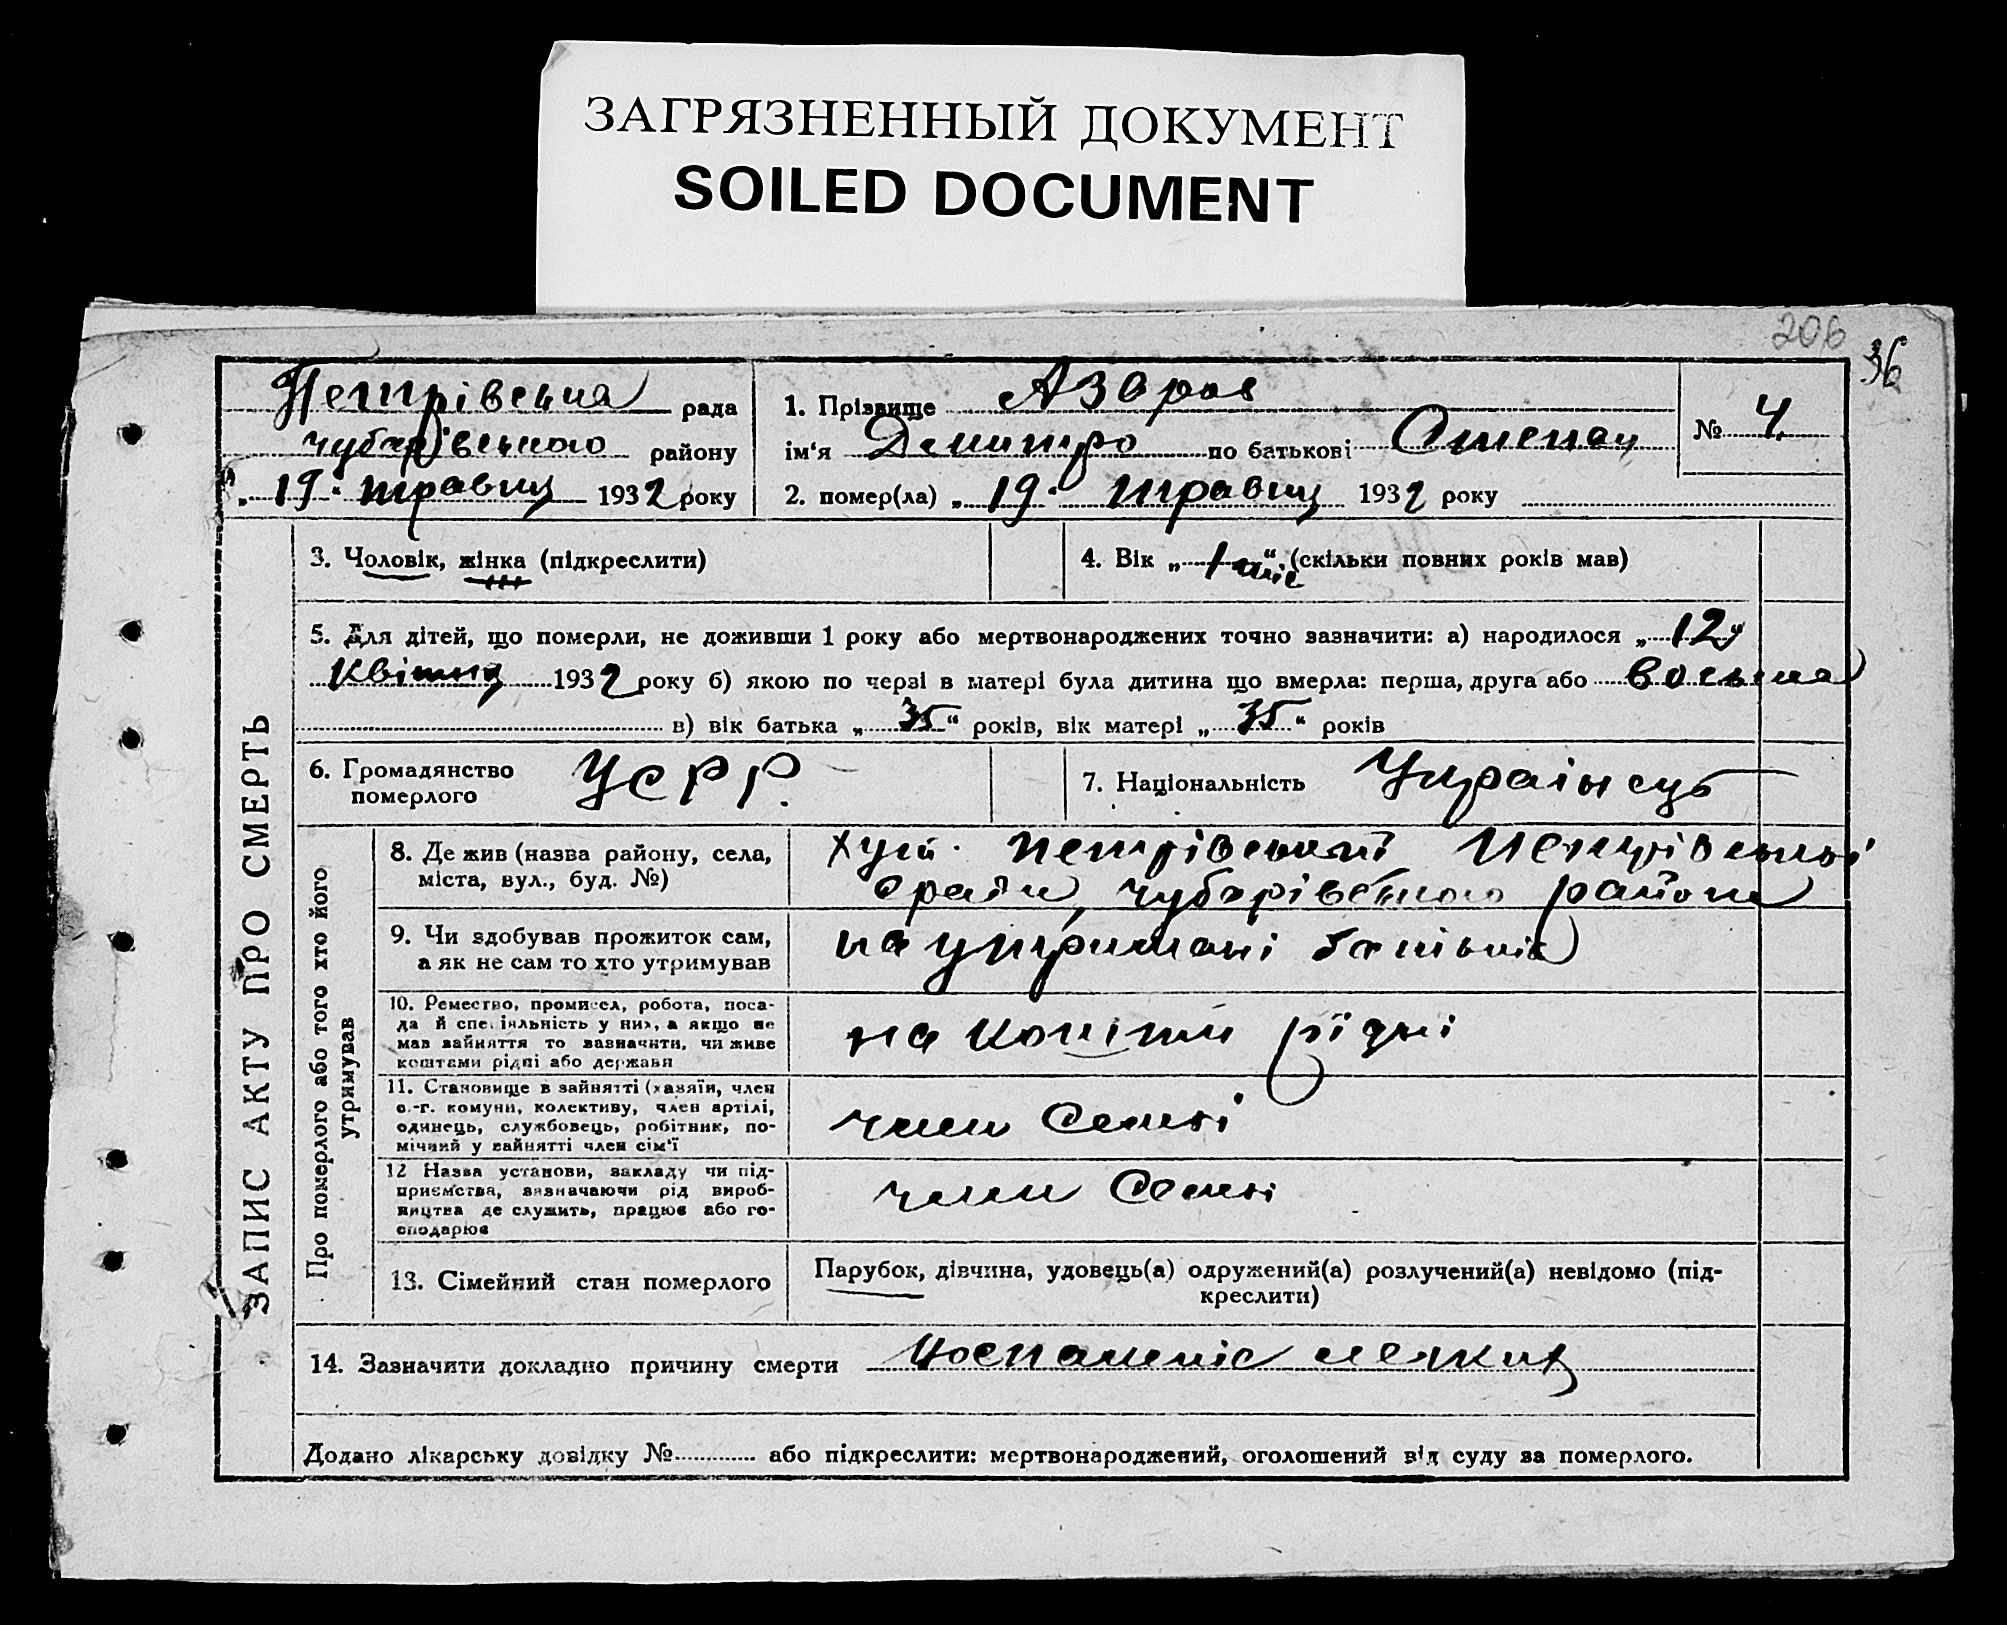 ЗАГРЯЗНЕННЫЙ ДОКУМЕНТ
SOILED DOCUMENT
206
36
Петрівська рада
Чубарівського району
„ 19 " травня 1932 року
1. Прізвище Азаров
ім'я Демитро по батькові Степан
№ 4
2. помер(ла) „ 19 " травня 1932 року
ЗАПИС АКТУ ПРО СМЕРТЬ
3. Чоловік, жінка (підкреслити)
4. Вік „ 1 міс " (скільки повних років мав)
5. Для дітей, що померли, не доживши 1 року або мертвонароджених точно зазначити: а) народилося „ 12 "
квітня 1932 року б) якою по черзі в матері була дитина що вмерла: перша, друга або восьма
в) вік батька „ 35 " років, вік матері „ 35 " років
6. Громадянство
померлого
УСРР
7. Національність Українець
Про померлого або того хто його
утримував
8. Де жив (назва району, села,
міста, вул., буд. №)
хут. Петрівський Петрівської
Сради, Чубарівського района
9. Чи здобував прожиток сам,
а як не сам то хто утримував
на утримані батьків
10. Ремество, промисел, робота, поса-
да й спеціяльність у них, а якщо не
мав зайняття то зазначити, чи живе
коштами рідні або держави
на кошти рідні
11. Становище в зайнятті (хазяїн, член
с.-г. комуни, колективу, член артілі,
одинець, службовець, робітник, по-
мічний у зайнятті член сім'ї
член Семьі
12 Назва установи, закладу чи під-
приємства, визначаючи рід вироб-
ництва де служить, працює або го-
сподарює
член Семьі
13. Сімейний стан померлого
Парубок, дівчина, удовець(а) одружений(а) розлучений(а) невідомо (під-
креслити)
14. Зазначити докладно причину смерти
Додано лікарську довідку № або підкреслити: мертвонароджений, оголошений від суду за померлого.